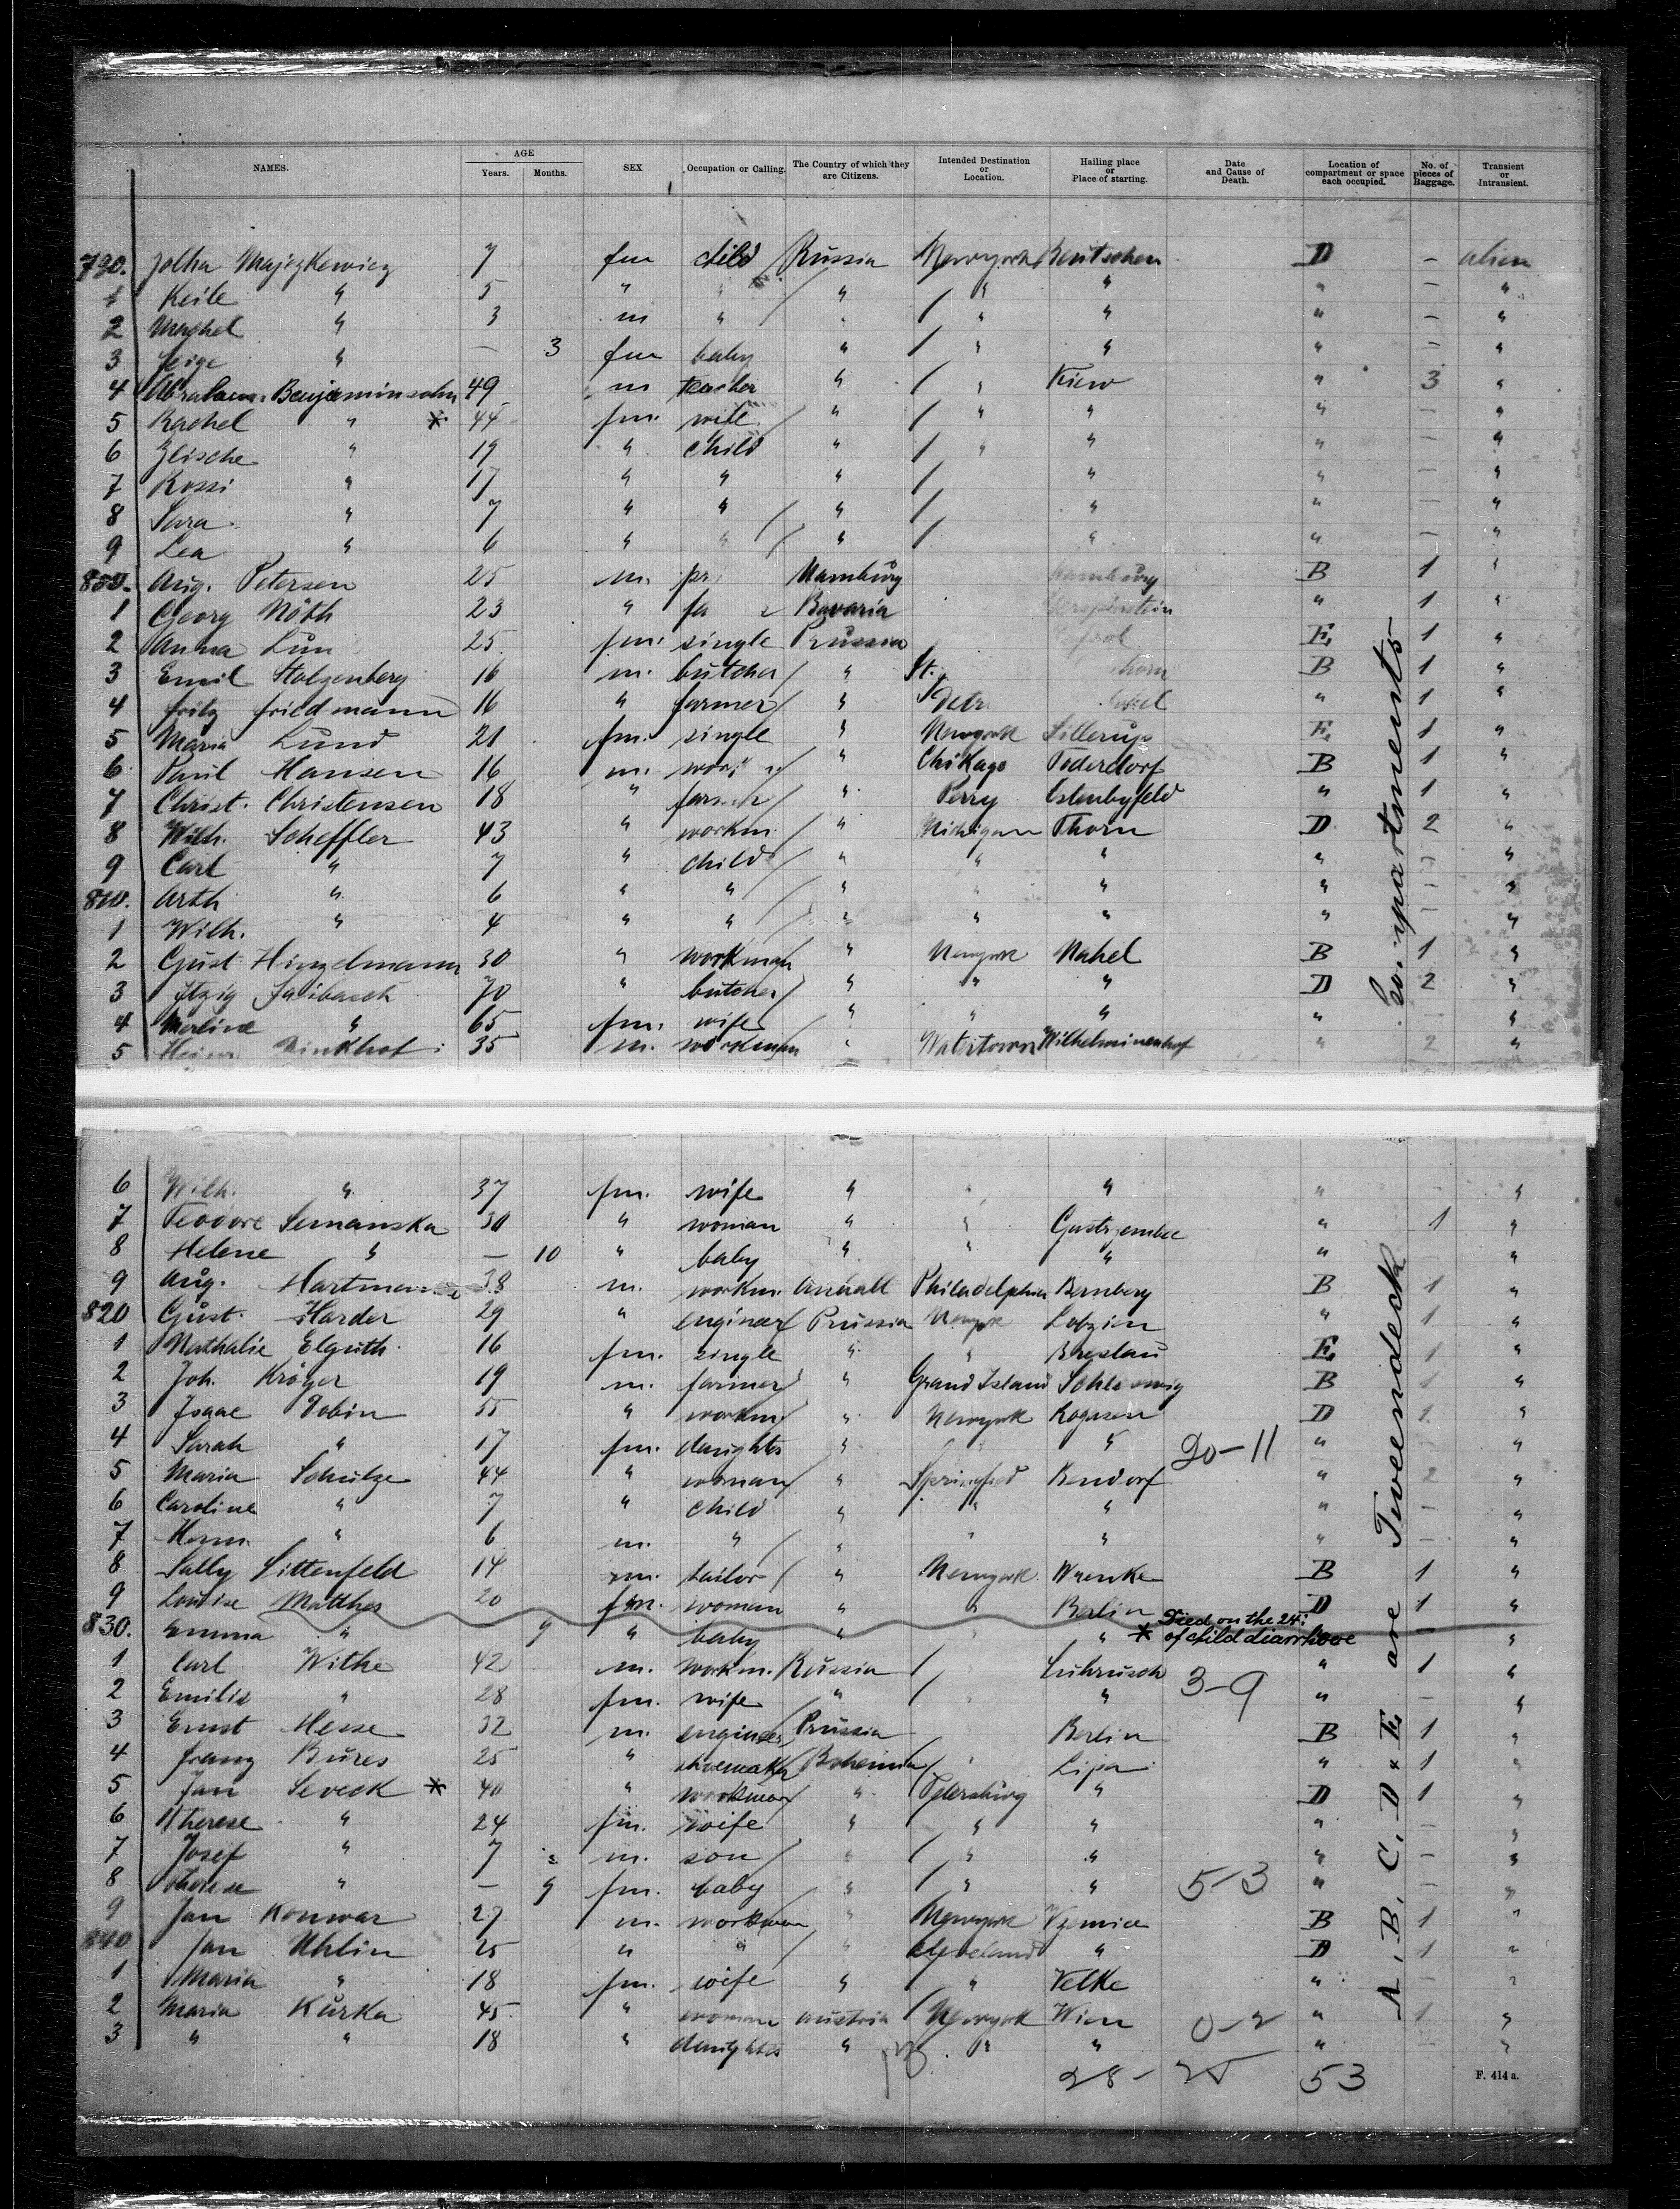 NAMES. AGE Years. Months. SEX Occupation or Calling. The Country of which they are Citizens. Intended Destination or Location. Hailing place or Place of starting. Date and Cause of Death. Location of compartment or space each occupied. No. of pieces of Baggage. Transient or Intransient.
790. Majezkewicz 7 fm child Russia Newyork Bentschen D - alien
1 Keile " 5 " " " " " " - "
2 " 3 m " " " " " - "
3 Feige " - 3 fm baby " " " " - "
4 Abraham Benjaminsohn 49 m teacher " " Kiew " 3 "
5 Rachel " * 44 fm. wife " " " " - "
6 Zlische " 19 " child " " " " - "
7 Rossi " 17 " " " " " - "
8 Sara " 7 " " " " " - "
9 Lea " 6 " " " " " - "
800. Aug. Petersen 25 m. Hamburg Hamburg B 1 "
1 Georg Nöth 23 " Bavaria " 1 "
2 Anna 25 fm. single Prussia E, 1 "
3 Emil Stolzenberg 16 m. butcher " St. B 1 "
4 Fritz Friedmann 16 " farmer " " 1 "
5 Maria Lund 21 fm. single " Newyork Lillerup E, 1 "
6 Paul Hansen 16 m. " Chikago Toderdorf B 1 "
7 Christ. Christensen 18 " farmer " Perry Estenbyfeld " 1 "
8 Wilh. Scheffler 43 " workm. " Michigan Thorn D 2 "
9 Carl " 7 " child " " " " - "
810. Arth " 6 " " " " " " - "
1 Wilh. " 4 " " " " " " - "
2 Gust. Hinzelmann 30 " workman " Newyork Nakel B 1 "
3 Itzig 70 " butcher " " " D 2 "
4 " 65 fm. wife " " " " - "
5 Heinr. Dinkhof 35 m. workman " Watertown Wilhelminenhof " 2 "
6 Wilh. " 37 fm. wife " " " " - "
7 Teodore Semanska 30 " woman " " " 1 "
8 Helene " - 10 " baby " " " " "
9 Aug. Hartmann 38 m. workm. Anhalt Philadelphia Bernberg B 1 "
820 Gust. Harder 29 " engineer Prussia Newyork Lobzien " 1 "
1 Nathalie Elguth 16 fm. single " " Breslau E, 1 "
2 Joh. Kröger 19 m. farmer " Grand Island Schleswig B 1 "
3 Isaac Tobin 55 " workm. " Newyork Rogasen D 1 "
4 Sarah " 17 fm. daughter " " " 20-11 " - "
5 Maria Schulze 44 " woman " Springfied Kendorf " 2 "
6 Caroline " 7 " child " " " " - "
7 Herm. " 6 m. " " " " " - "
8 Sally Littenfeld 14 m. tailor " Newyork Wrenke B 1 "
9 Louise Matthes 20 fm. woman " " Berlin D 1 "
830. Emma " - 9 " baby " " " * Died on the 24: of child diarrhoee - "
1 Carl Withe 42 m. workm. Russia " Luhrusch " 1 "
2 Emilie " 28 fm. wife " " " 3-9 " - "
3 Ernst Hesse 32 m. engineer Prussia Berlin B 1 "
4 Franz Bures 25 " shoemaker Bohemia " Lipa " 1 "
5 Jan Seveck * 40 " workman " Petersburg " D 1 "
6 Therese " 24 fm. wife " " " " - "
7 Josef " 7 m. son " " " " - "
8 Therese " - 9 fm. baby " " " 5-3 " - "
9 Jan Konwar 27 m. workman " Newyork B 1 "
840 Jan Uhlin 25 " " " Cleveland " D 1 "
1 Maria " 18 fm. wife " " Velke " - "
2 Maria Kurka 45 " woman Austria Newyork Wien " 1 "
3 " " 18 " daughter " " " 0-2 " - "
28- 25 53
F. 414 a.
A, B, C, D & E, are Tweendeck Compartments